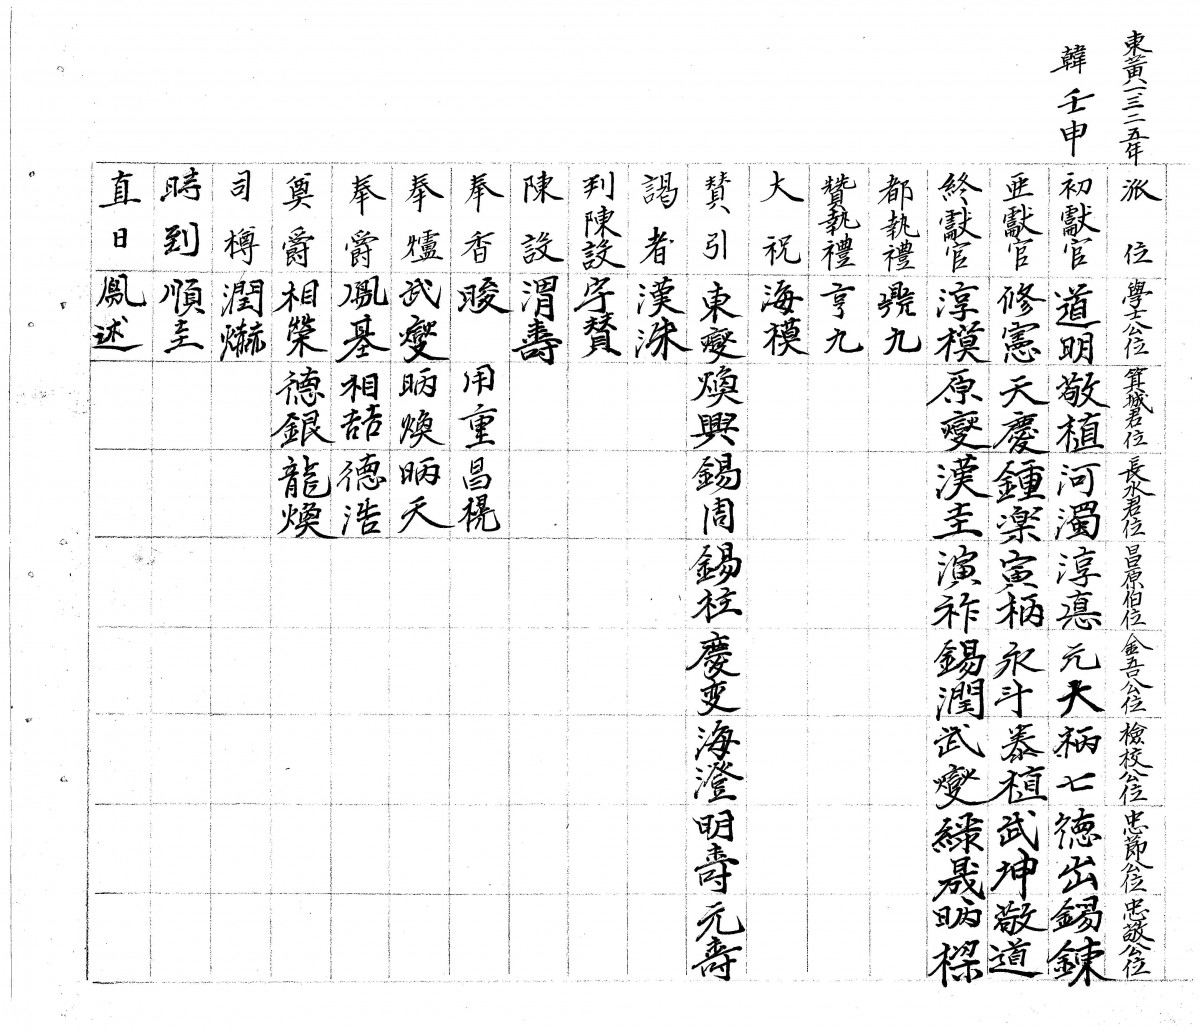 東黃一三二五年
韓壬申
派位 學士公位 箕城君位 長水君位 昌原伯位 金吾公位 檢校公位 忠節公位 忠敬公位
初獻官 道明 敬植 河濁 淳惪 元大 柄七 德出 錫鍊
亜獻官 修憲 天慶 鍾楽 寅柄 永斗 泰植 武坤 敬道
終獻官 淳模 原燮 漢圭 演祚 錫潤 武燮 緑晟 昞樑
都執禮 鼎九
贊執禮 亨九
大祝 海模
賛引 東燮 煥興 錫周 錫柱 慶変 海澄 明壽 元壽
謁者 漢洙
到陳設 宇賛
陳設 渭壽
奉香 晙 用重 昌槿
奉爐 武燮 昞煥 昞天
奉爵 鳳基 相喆 德浩
奠爵 相榮 德銀 龍煥
司樽 潤爀
時到 順圭
直日 鳳述